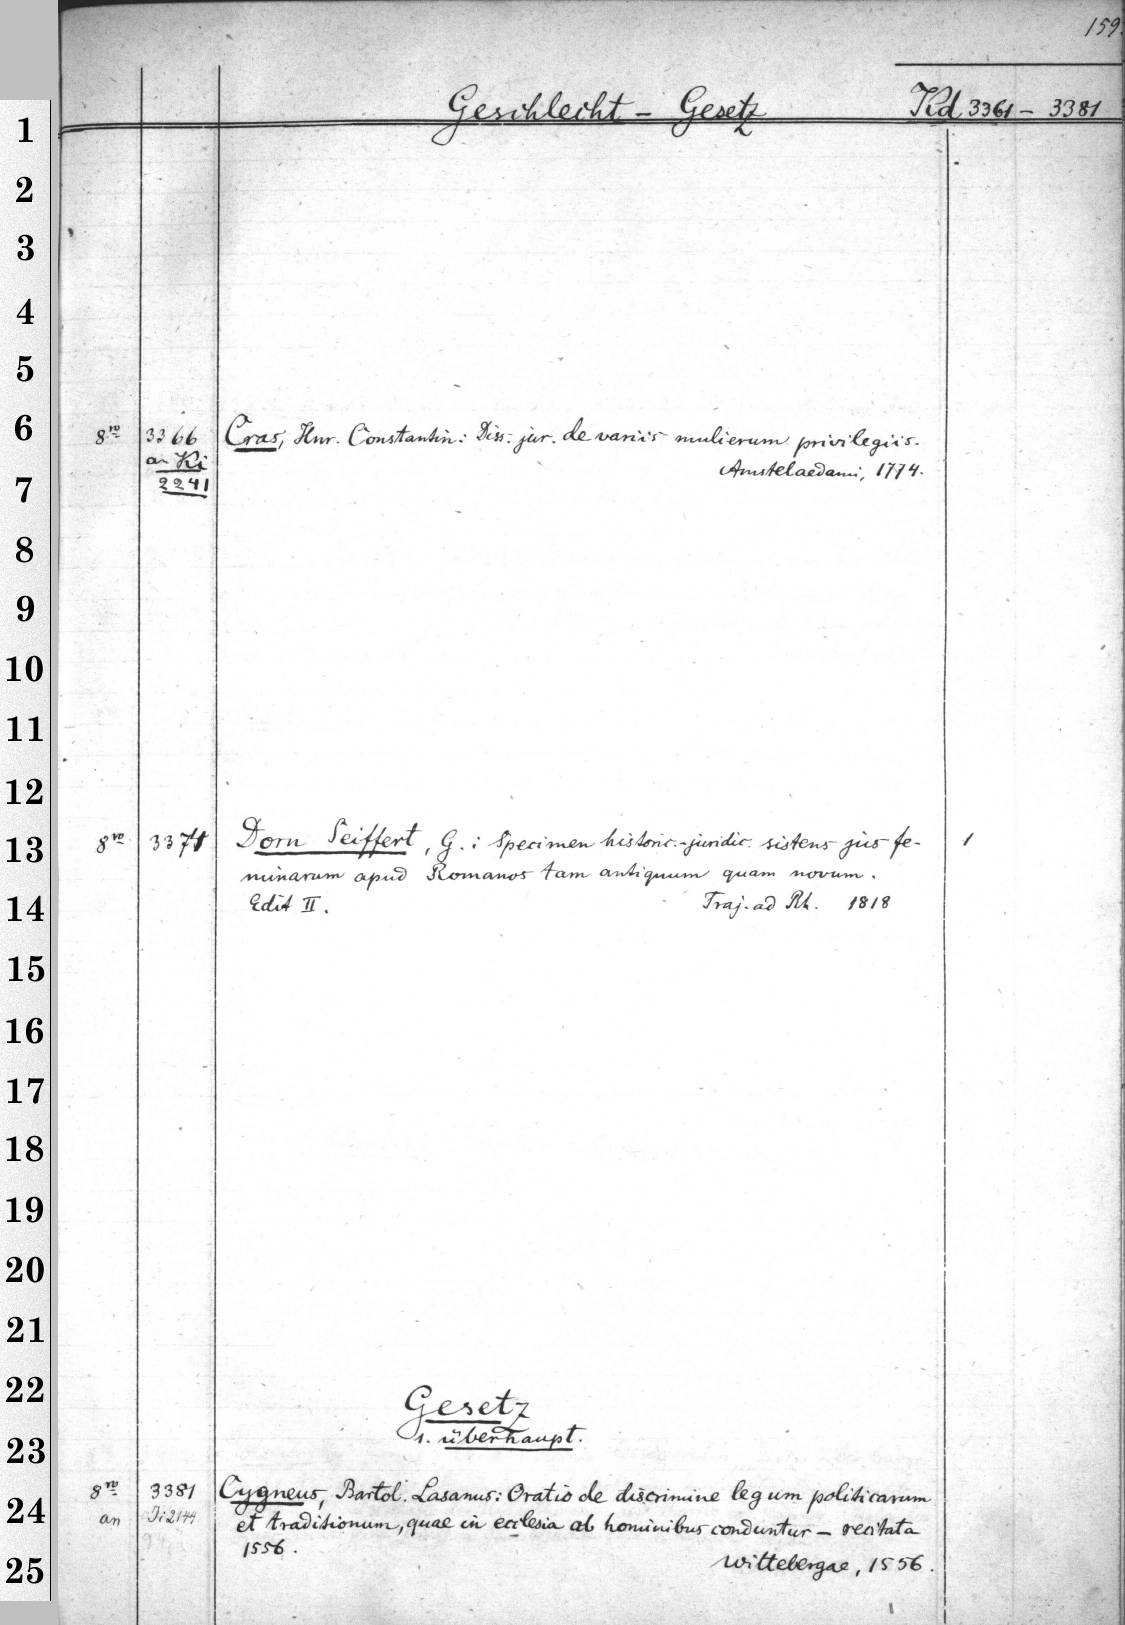 159.
Geschlecht – Gesetz Kd 3361 – 3381
1
2
3
4
5
6 8vo 3366 Cras, Hnr. Constantin: Diss. jur. de variis mulierum privilegiis.
an Ki Amstelaedami, 1774.
7 2241
8
9
10
11
12
13 8vo 3371 Dorn Seiffert, G.: Specimen historic.-juridic. sistens jus fe- 1
minarum apud Romanos tam antiquum quam novum.
14 Edit II. Traj. ad Rh. 1818
15
16
17
18
19
20
21
22 Gesetz
23 1. überhaupt.
8vo 3381 Cygneus, Bartol. Lasanus: Oratio de discrimine legum politicarum
24 an Ji 2144 et traditionum, quae in ecclesia ab hominibus conduntur – recitata
1556.
25 Wittebergae, 1556.